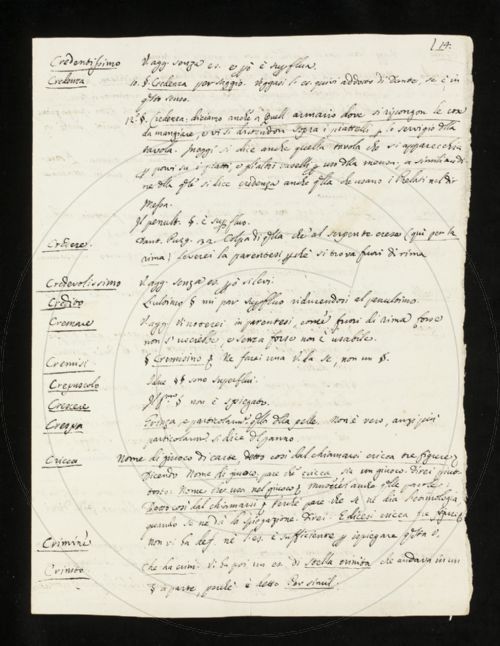 14.
Credentissimo V. agg. senza es. e però è superflua.
Credenza 10. §. Credenza per saggio. Veggasi l'es. quivi addotto di Dante, se è in
questo senso.
12. §. Credenza, diciamo anche a quell'armario dove si ripongon le cose
da mangiare, e vi si distendon sopra i piattelli per lo servigio della
tavola. Oggi si dice anche quella tavola che si apparecchia
per porvi su i piatti, e gli altri vaselli per uso della mensa; a similitudine
della quale si dice credenza anche quella che usano i Prelati nel dir
Messa.
Il penult. §. è superfluo.
Credere. Dant. Purg. 32. Colpa di quella ch'al serpente crese (qui per la
rima) leverei la parentesi perchè si trova fuori di rima
Credevolissimo V. agg. senza es. però si levi.
Credito L'ultimo § mi par superfluo riducendosi al penultimo.
Cremare V. agg. Vi noterei in parentesi, come fuori di rima forse
non si userebbe, e senza forse non è usabile.
Cremisi § Cremisino Ne farei una V. da se, non un §.
Crepuscolo I due §§ sono superflui.
Crescere Il § non è spiegato.
Crespa Grinza, e particolarmente quella della pelle. Non è vero, anzi più
particolarmente si dice di panno
Cricca Nome di giuoco di carte detto così dal chiamarsi cricca tre figure;
dicendo Nome di giuoco, pare che cricca sia un giuoco. Direi piuttosto:
Nome che usa nel giuoco
Detto così dal chiamarsi pare che se ne dia l'etimologia
quando se ne dà la spiegazione. Direi: E dicesi cricca tre figure
Crimine non vi ha def. nè l'es. è sufficiente per ispiegare questa V.
Crinito Che ha crini. Vi ha poi un es. di stella crinita che andava in un
§ a parte, perchè è detto per simil.